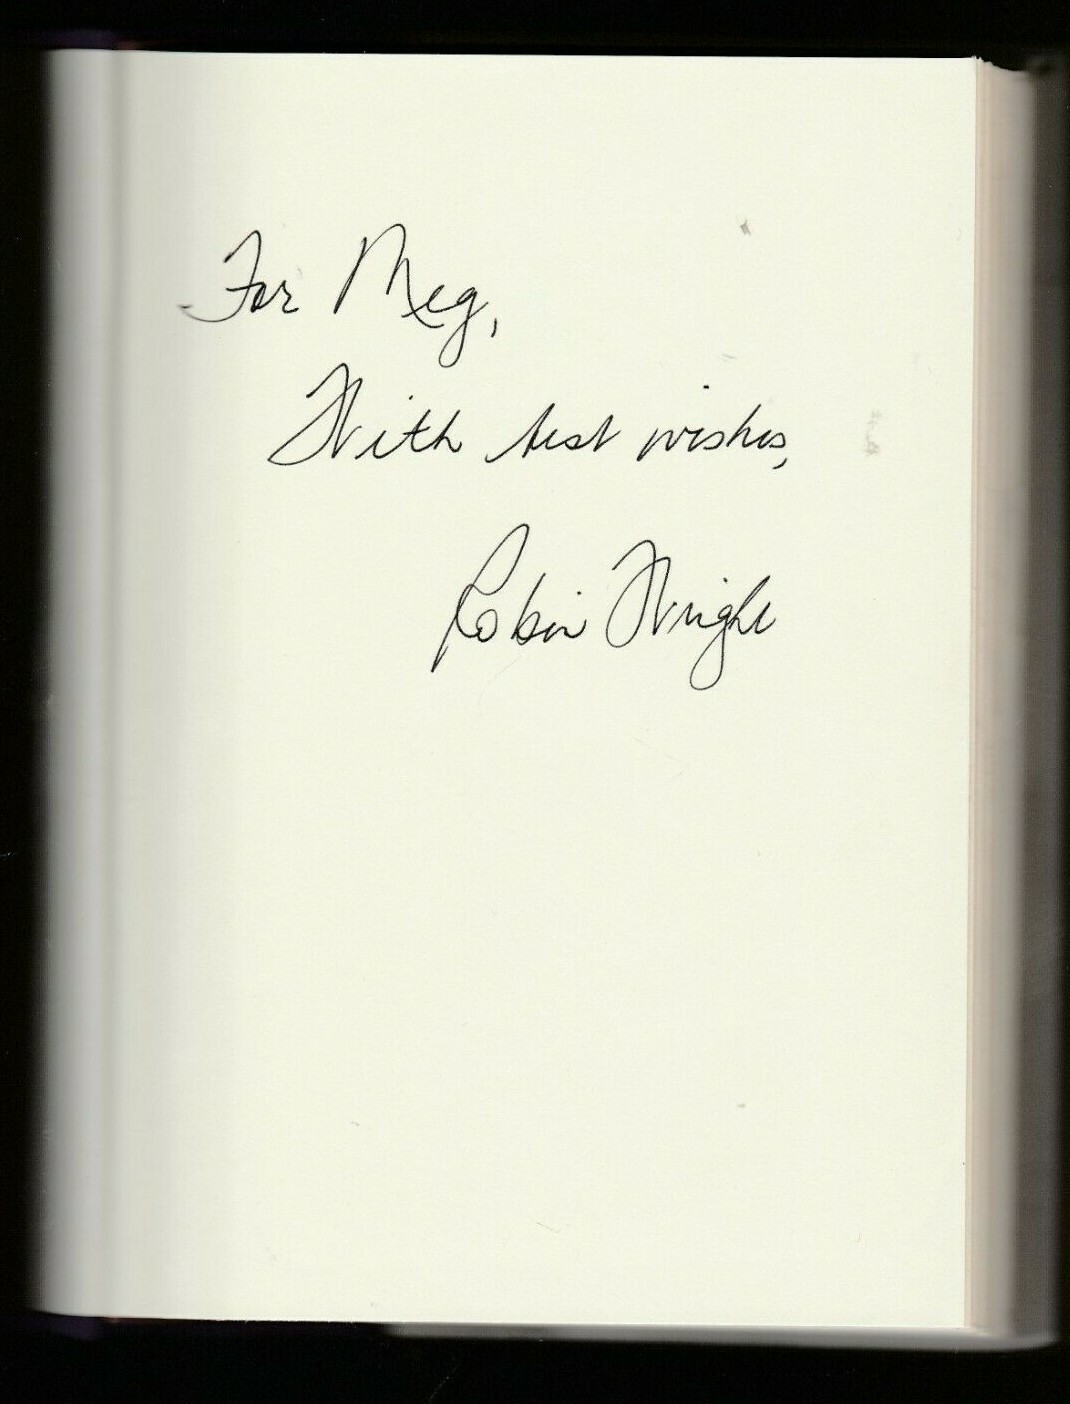 For Meg,
With best wishes,
Robin Wright